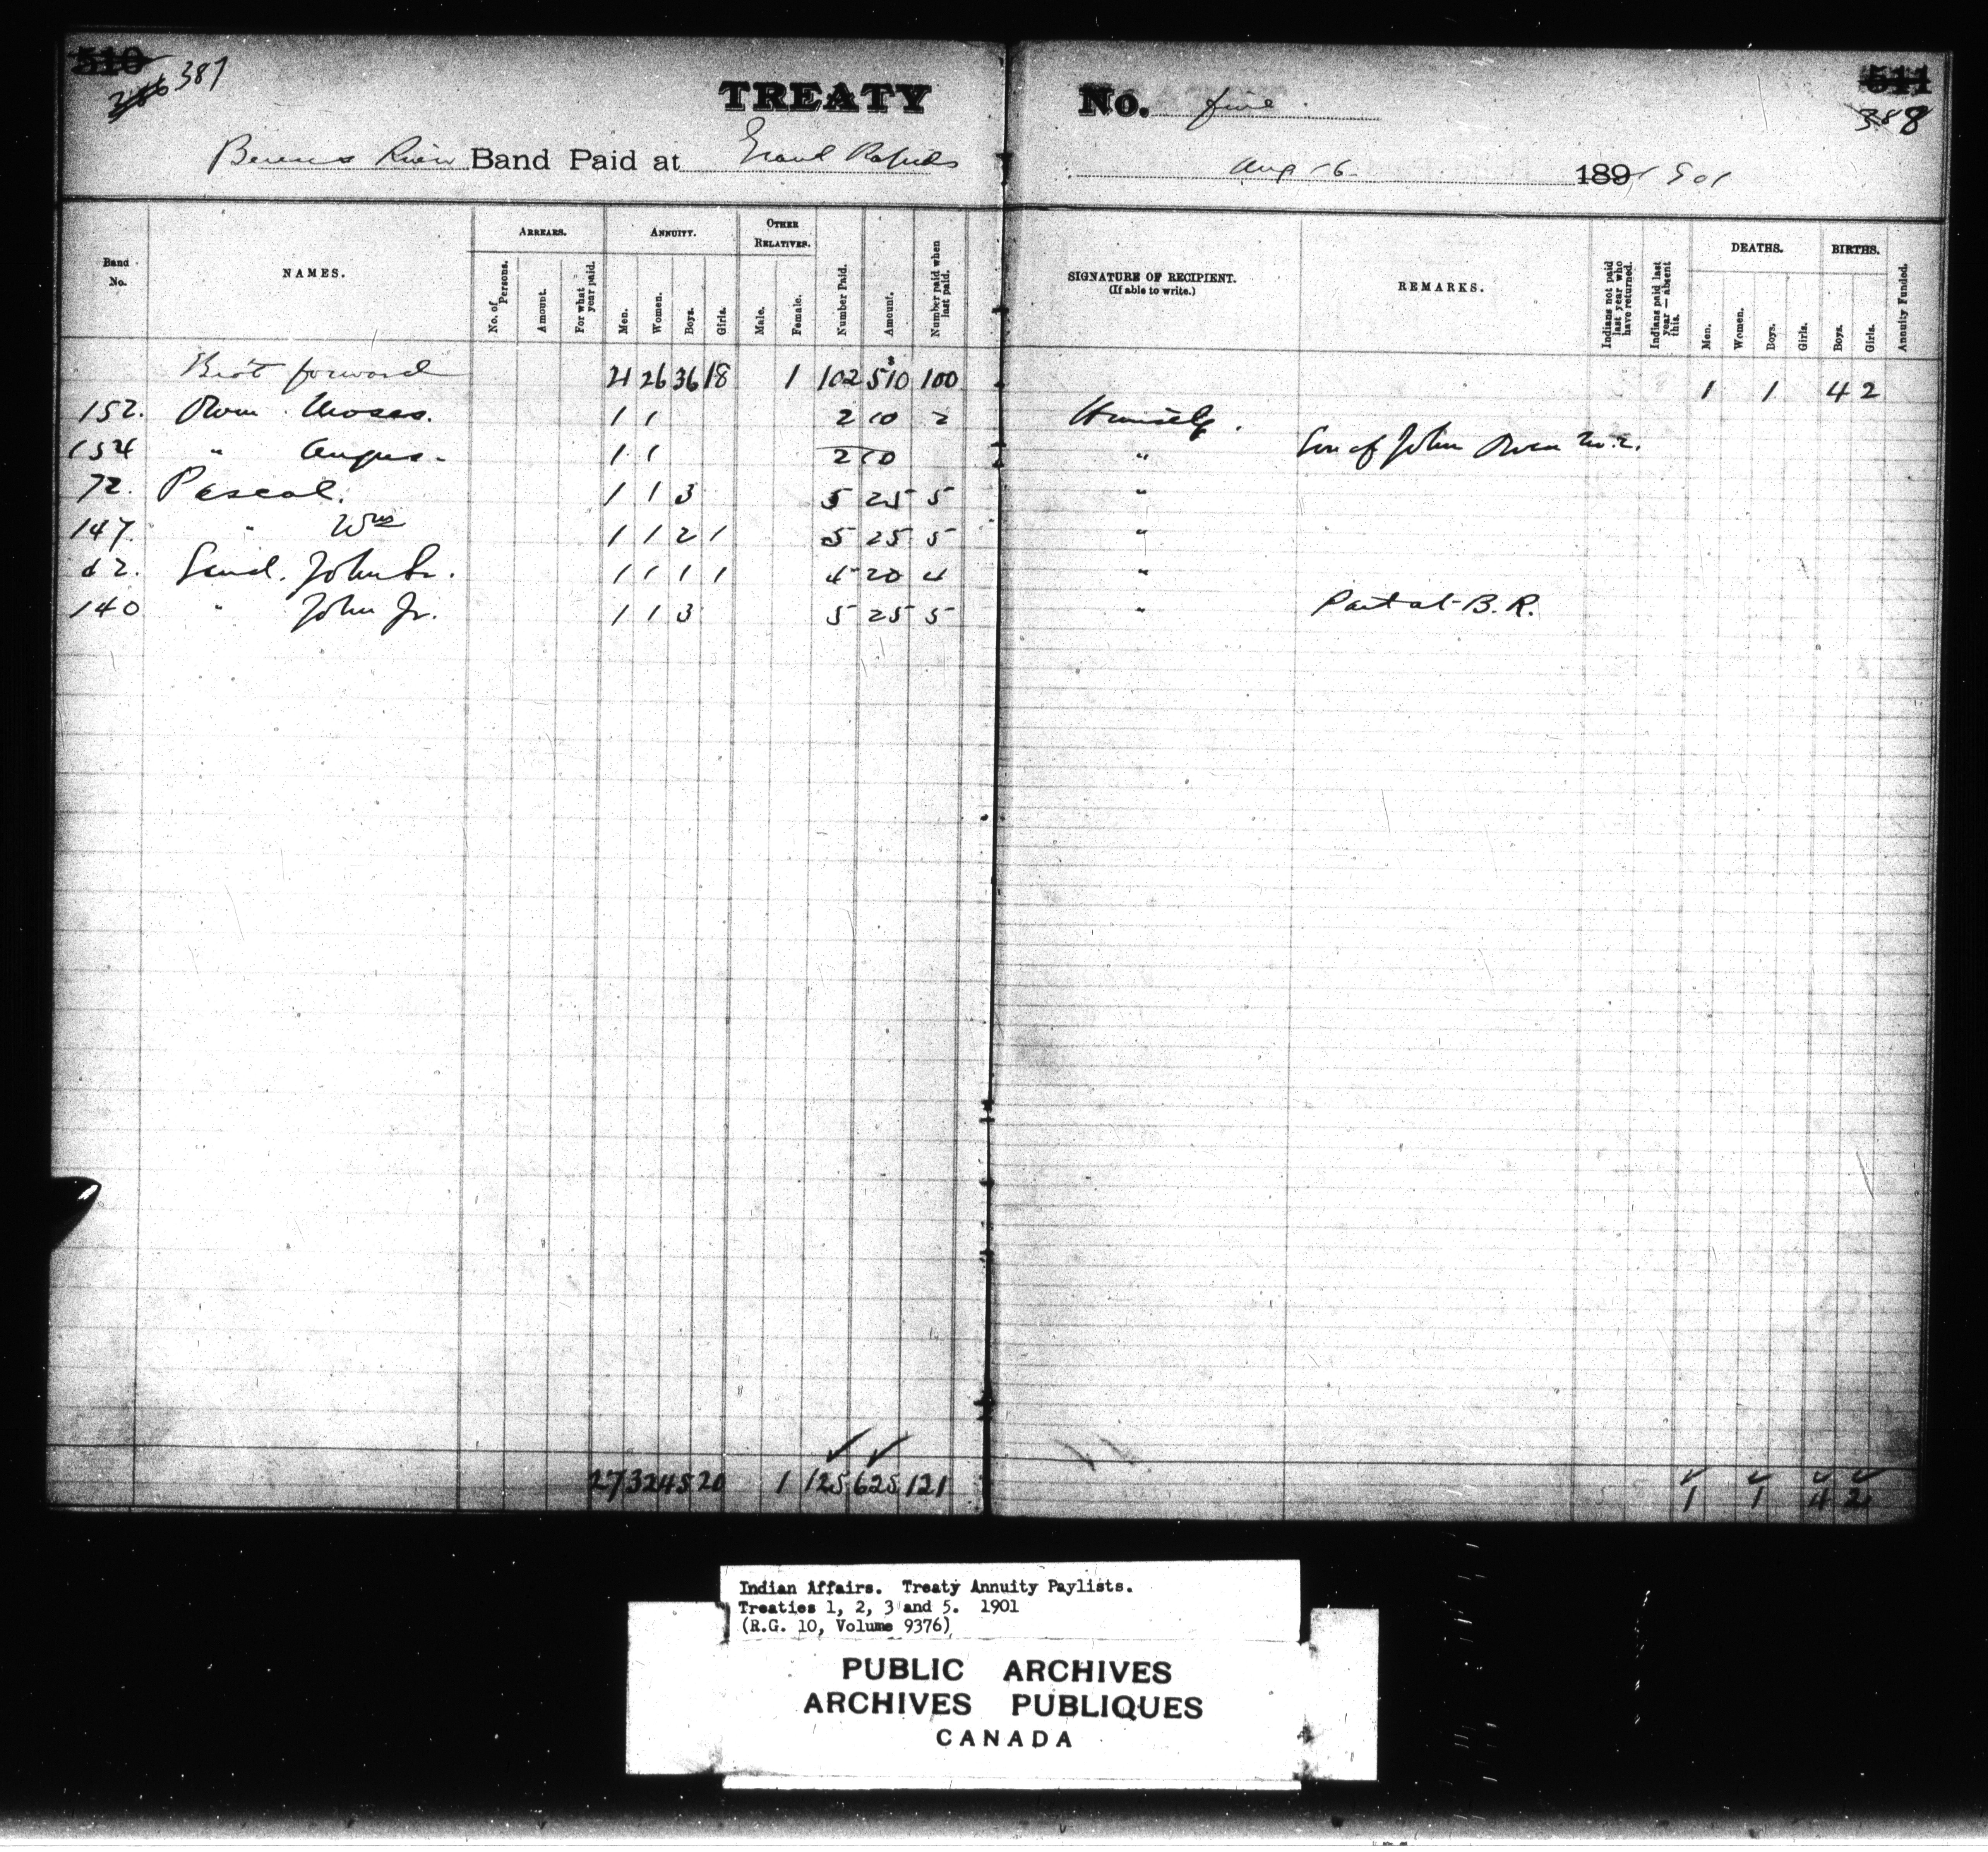 510 511
386 387 388
TREATY No. five
Berens River Band Paid at Grand Rapids Aug 16 189 1901
Band No. NAMES. ARREARS. No. of Persons. Amount. For what year paid. ANNUITY. Men. Women. Boys. Girls. OTHER RELATIVES. Male. Female. Number Paid. Amount. Number paid when last paid. SIGNATURE OF RECIPIENT. (If able to write.) REMARKS. Indians not paid last year who have returned. Indians paid last year — absent this. DEATHS. Men. Women. Boys. Girls. BIRTHS. Boys. Girls. Annuity Funded.
Bro't forward 21 26 36 18 1 102 $510 100 1 1 4 2
152. Owen Moses. 1 1 2 10 2 Himself.
154 " Angus. 1 1 2 10 " Son of John Owen No. 2.
72. Pascal. 1 1 3 5 25 5 "
147. " Wm 1 1 2 1 5 25 5 "
62. Sand. John Sr. 1 1 1 1 4 20 4 "
140 " John Jr. 1 1 3 5 25 5 " Paid at B. R.
27 32 45 20 1 125 625 121 1 1 4 2
Indian Affairs. Treaty Annuity Paylists.
Treaties 1, 2, 3 and 5. 1901
(R.G. 10, Volume 9376)
PUBLIC ARCHIVES
ARCHIVES PUBLIQUES
CANADA